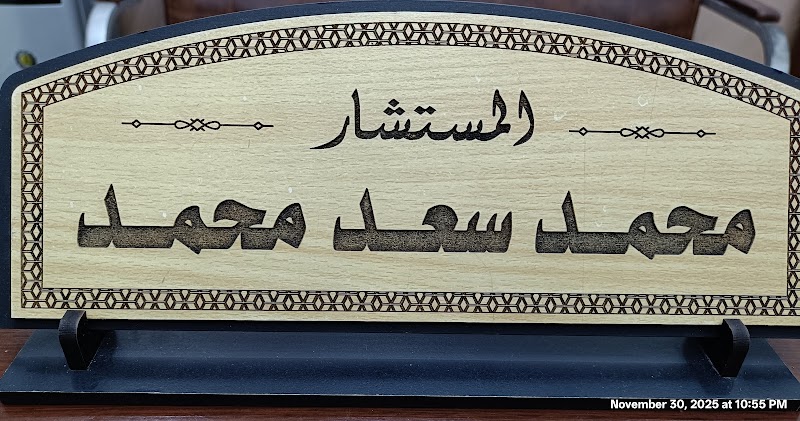 المستشار
محمد سعد محمد
November 30, 2025 at 10:55 PM